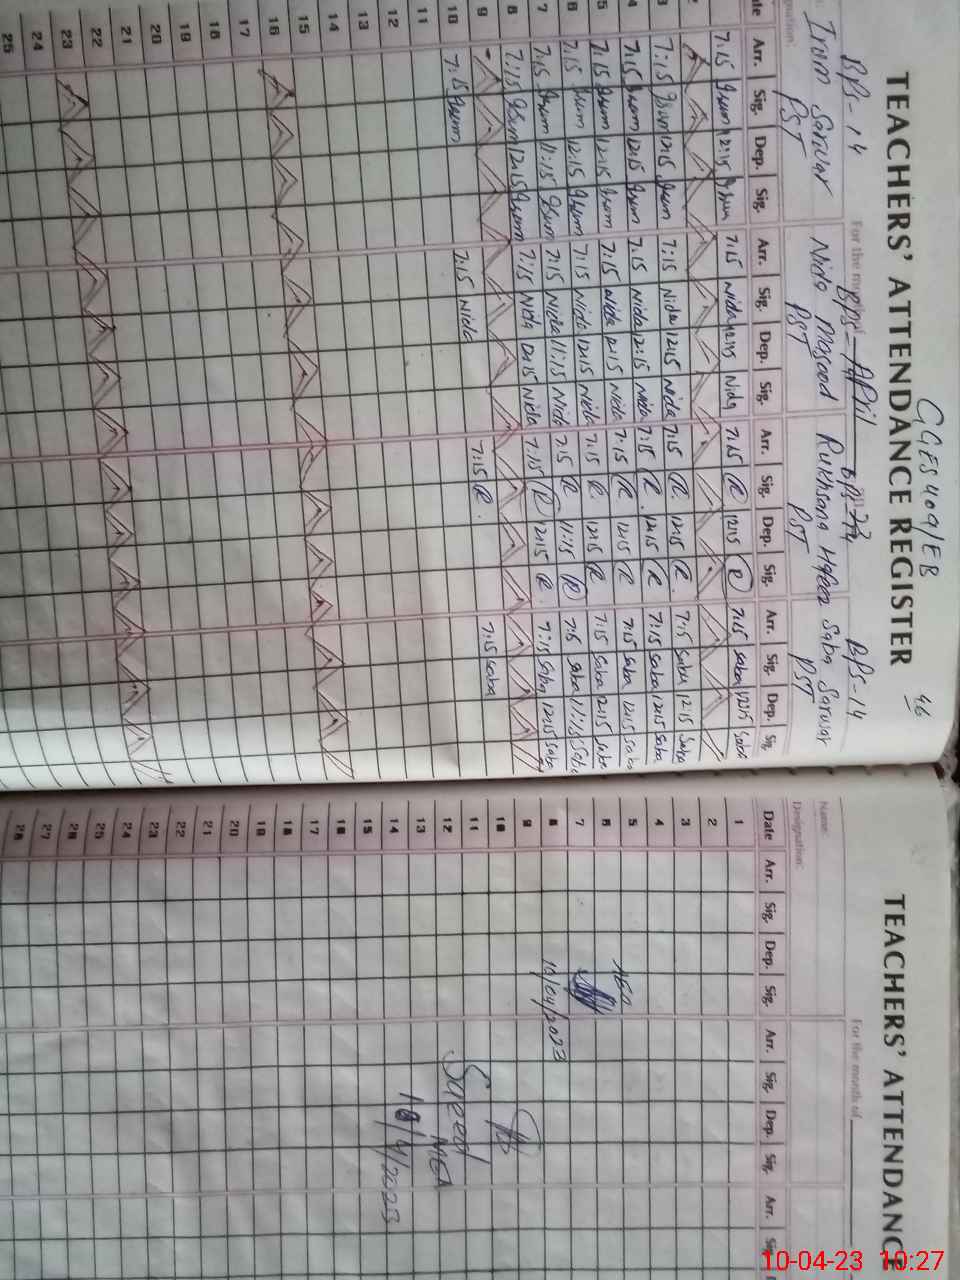 GGES 409/EB
46
TEACHERS' ATTENDANCE REGISTER
For the month of April
BPS-14 BPS- BPS-14
Irum Sarwar Nida Masood Rukhsana Saba Sarwar
PST PST PST PST
Date Arr. Sig. Dep. Sig. Arr. Sig. Dep. Sig. Arr. Sig. Dep. Sig. Arr. Sig. Dep. Sig.
7:15 Irum 12:15 Irum 7:15 Nida 12:15 Nida 7:15 R 12:15 R 7:15 Saba 12:15 Saba
3 7:15 Irum 12:15 Irum 7:15 Nida 12:15 Nida 7:15 R 12:15 R 7:15 Saba 12:15 Saba
4 7:15 Irum 12:15 Irum 7:15 Nida 12:15 Nida 7:15 R 12:15 R 7:15 Saba 12:15 Saba
5 7:15 Irum 12:15 Irum 7:15 Nida 12:15 Nida 7:15 R 12:15 R 7:15 Saba 12:15 Saba
6 7:15 Irum 12:15 Irum 7:15 Nida 12:15 Nida 7:15 R 12:15 R 7:15 Saba 12:15 Saba
7 7:15 Irum 11:15 Irum 7:15 Nida 11:15 Nida 7:15 R 11:15 R 7:15 Saba 11:15 Saba
8 7:15 Irum 12:15 Irum 7:15 Nida 12:15 Nida 7:15 R 12:15 R 7:15 Saba 12:15 Saba
9
10 7:15 Irum 7:15 Nida 7:15 R 7:15 Saba
11
12
13
14
15
16
17
18
19
20
21
22
23
24
25
TEACHERS' ATTENDANCE
For the month of
Name:
Designation:
Date Arr. Sig. Dep. Sig. Arr. Sig. Dep. Sig. Arr. Sig.
1
2
3
4
5
6
7
8
9
10
11
12
13
14
15
16
17
18
19
20
21
22
23
24
25
26
27
28
AEO
10/04/2023
Saeed
MEA
10/4/2023
10-04-23 10:27